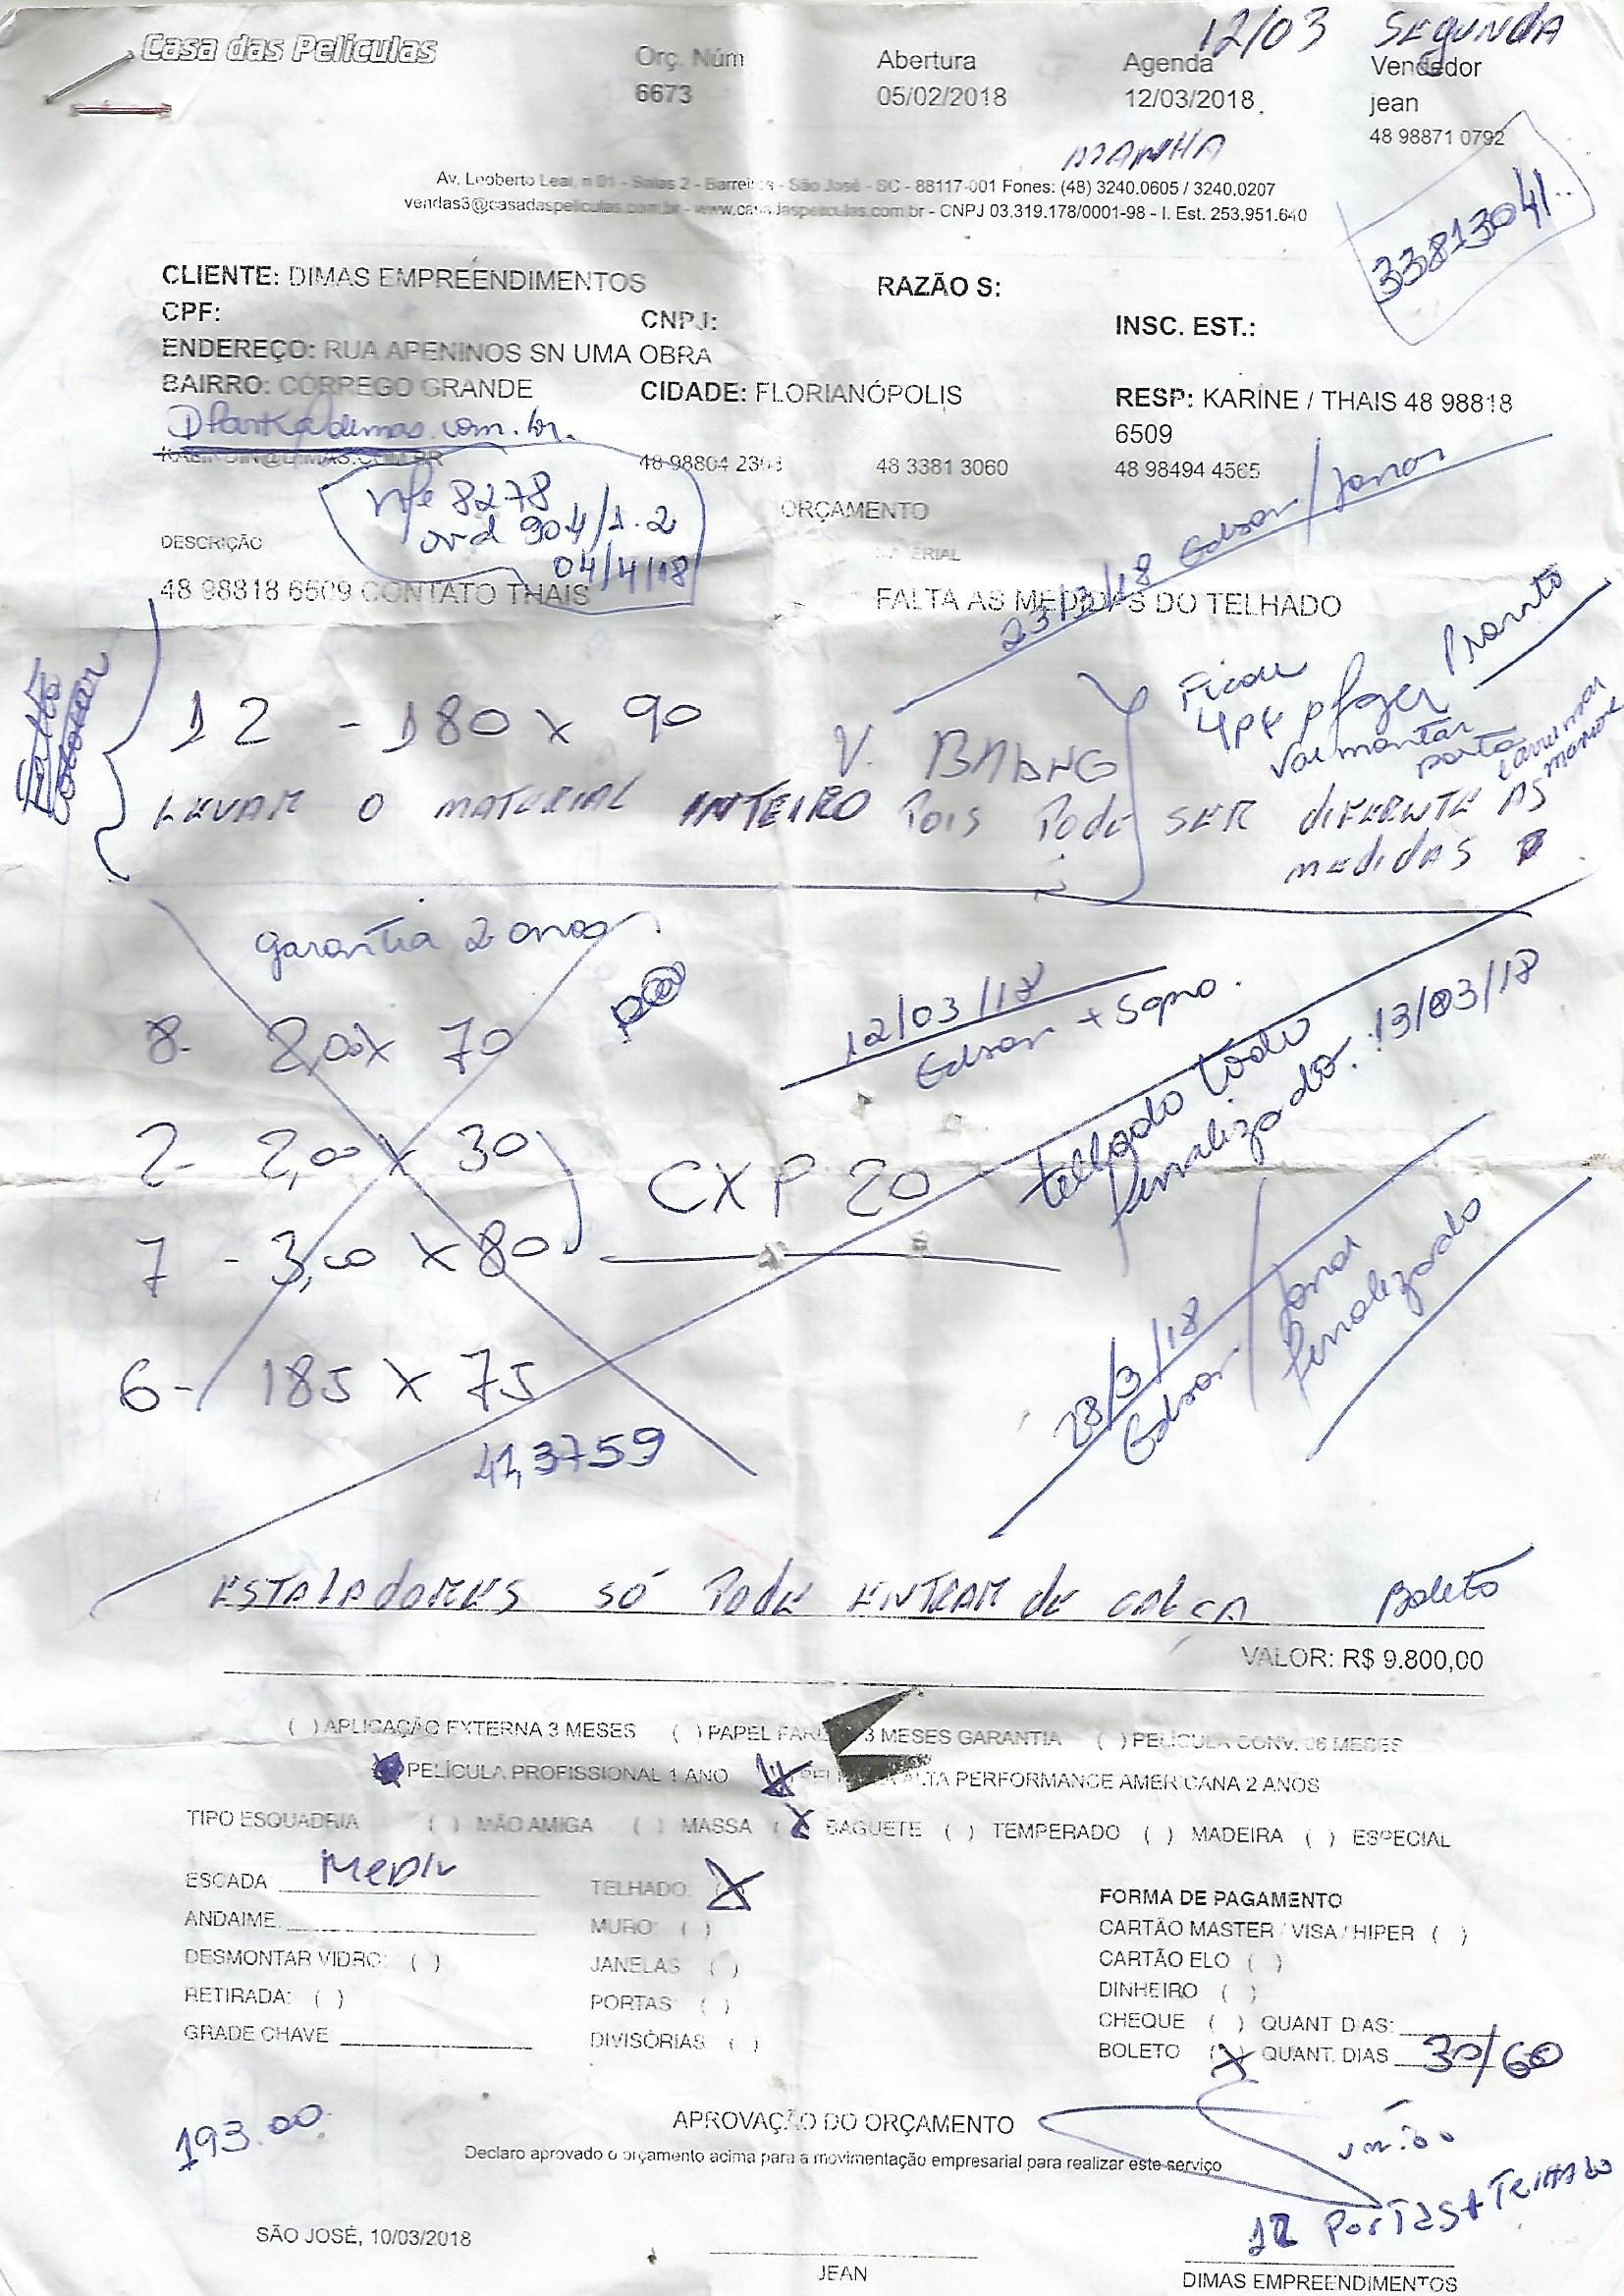 Casa das Películas
12/03 SEGUNDA
Orç. Núm
6673
Abertura
05/02/2018
Agenda
12/03/2018
Vendedor
jean
48 98871 0792
MANHA
Av. Leoberto Leal, n 01 - Salas 2 - Barreiros - São José - SC - 88117-001 Fones: (48) 3240.0605 / 3240.0207
vendas3@casadaspeliculas.com.br - www.casadaspeliculas.com.br - CNPJ 03.319.178/0001-98 - I. Est. 253.951.640
33813041
CLIENTE: DIMAS EMPREENDIMENTOS
RAZÃO S:
CPF:
CNPJ:
INSC. EST.:
ENDEREÇO: RUA APENINOS SN UMA OBRA
BAIRRO: CÓRREGO GRANDE
CIDADE: FLORIANÓPOLIS
RESP: KARINE / THAIS 48 98818
6509
48 3381 3060
48 98494 4565
nfe 8278
ord 904/1.2
04/4/18
ORÇAMENTO
DESCRIÇÃO
MATERIAL
48 98818 6509 CONTATO THAIS
FALTA AS MEDIDAS DO TELHADO
23/3/18 Edson/Jonas
Falta colocar
12 - 180 x 90
Ficou
4 p/ fazer
Vai montar
porta
Pronto
LEVAR O MATERIAL INTEIRO POIS PODE SER DIFERENTE AS
MEDIDAS
garantia 2 anos
8- 2,00 x 70
12/03/18
2- 2,00 x 30
7 - 3,00 x 80
CXP 20
6- 185 x 75
41,3759
telhado todo
finalizado. 13/03/18
23/3/18
Edson/Jonas
finalizado
ESTALADORES SÓ PODE ENTRAR DE CALÇA
Boleto
VALOR: R$ 9.800,00
( ) APLICAÇÃO EXTERNA 3 MESES ( ) PAPEL PAREDE 3 MESES GARANTIA ( ) PELÍCULA CONV. 06 MESES
PELÍCULA PROFISSIONAL 1 ANO PELÍCULA ALTA PERFORMANCE AMERICANA 2 ANOS
TIPO ESQUADRIA ( ) MÃO AMIGA ( ) MASSA (X) BAGUETE ( ) TEMPERADO ( ) MADEIRA ( ) ESPECIAL
ESCADA Medir
TELHADO: (X)
ANDAIME:
MURO: ( )
DESMONTAR VIDRO: ( )
JANELAS: ( )
RETIRADA: ( )
PORTAS: ( )
GRADE CHAVE
DIVISÓRIAS: ( )
FORMA DE PAGAMENTO
CARTÃO MASTER / VISA / HIPER ( )
CARTÃO ELO ( )
DINHEIRO ( )
CHEQUE ( ) QUANT DIAS:
BOLETO (X) QUANT. DIAS 30/60
193.00
APROVAÇÃO DO ORÇAMENTO
Declaro aprovado o orçamento acima para a movimentação empresarial para realizar este serviço
12 PORTAS + TELHADO
SÃO JOSÉ, 10/03/2018
JEAN
DIMAS EMPREENDIMENTOS